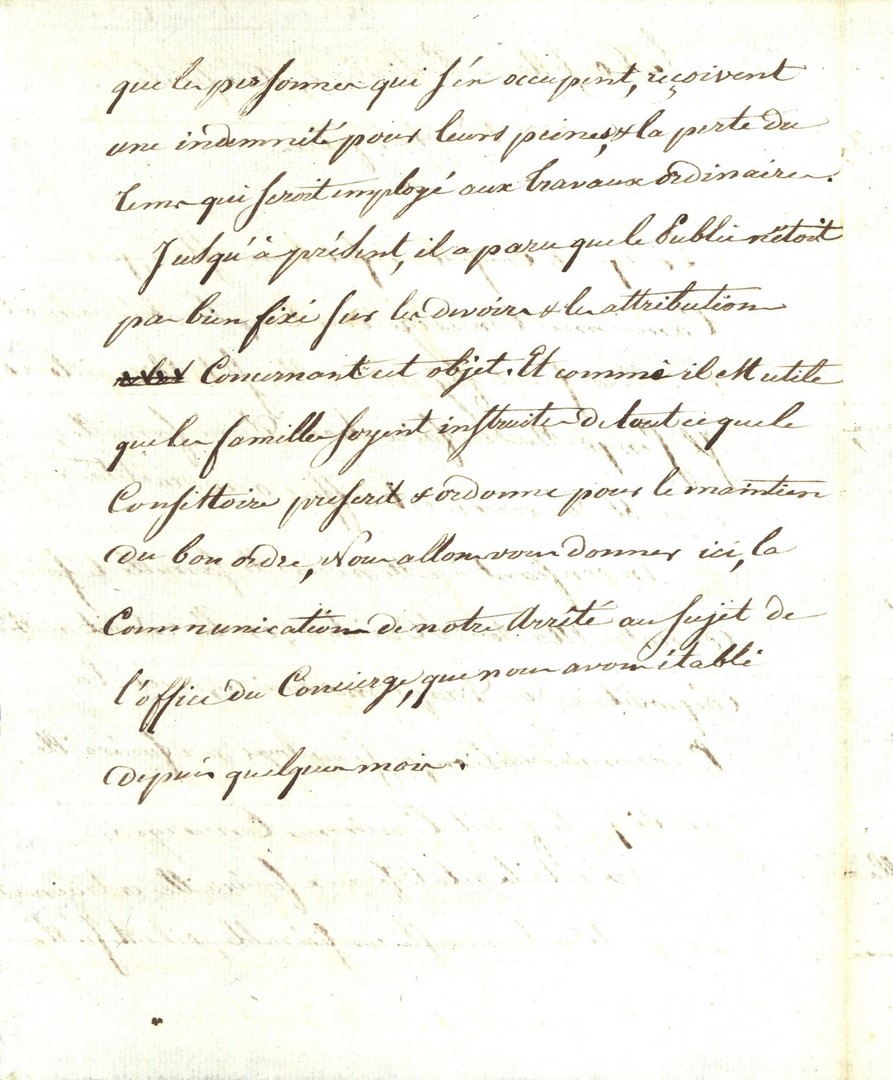 que les personnes qui s'en occupent, reçoivent
une indemnité pour leurs peines, & la perte du
tems qui seroit employé aux travaux ordinaires.
Jusqu'à présent, il a paru que le Public n'étoit
pas bien fixé sur les devoirs & les attributions
Concernant cet objet. Et comme il est utile
que les familles soyent instruites de tout ce que le
Consistoire prescrit & ordonne pour le maintien
du bon ordre, Nous allons vous donner ici, la
Communication de notre Arrêté au sujet de
l'office du Concierge, que nous avons établi
depuis quelques mois.